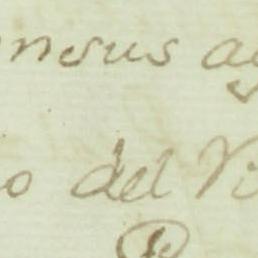 ensus a
o del Vi